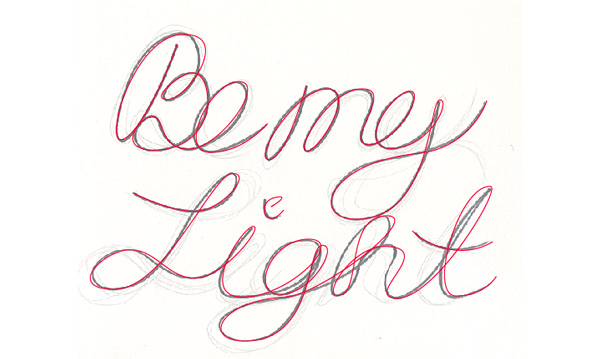 Be my
Light